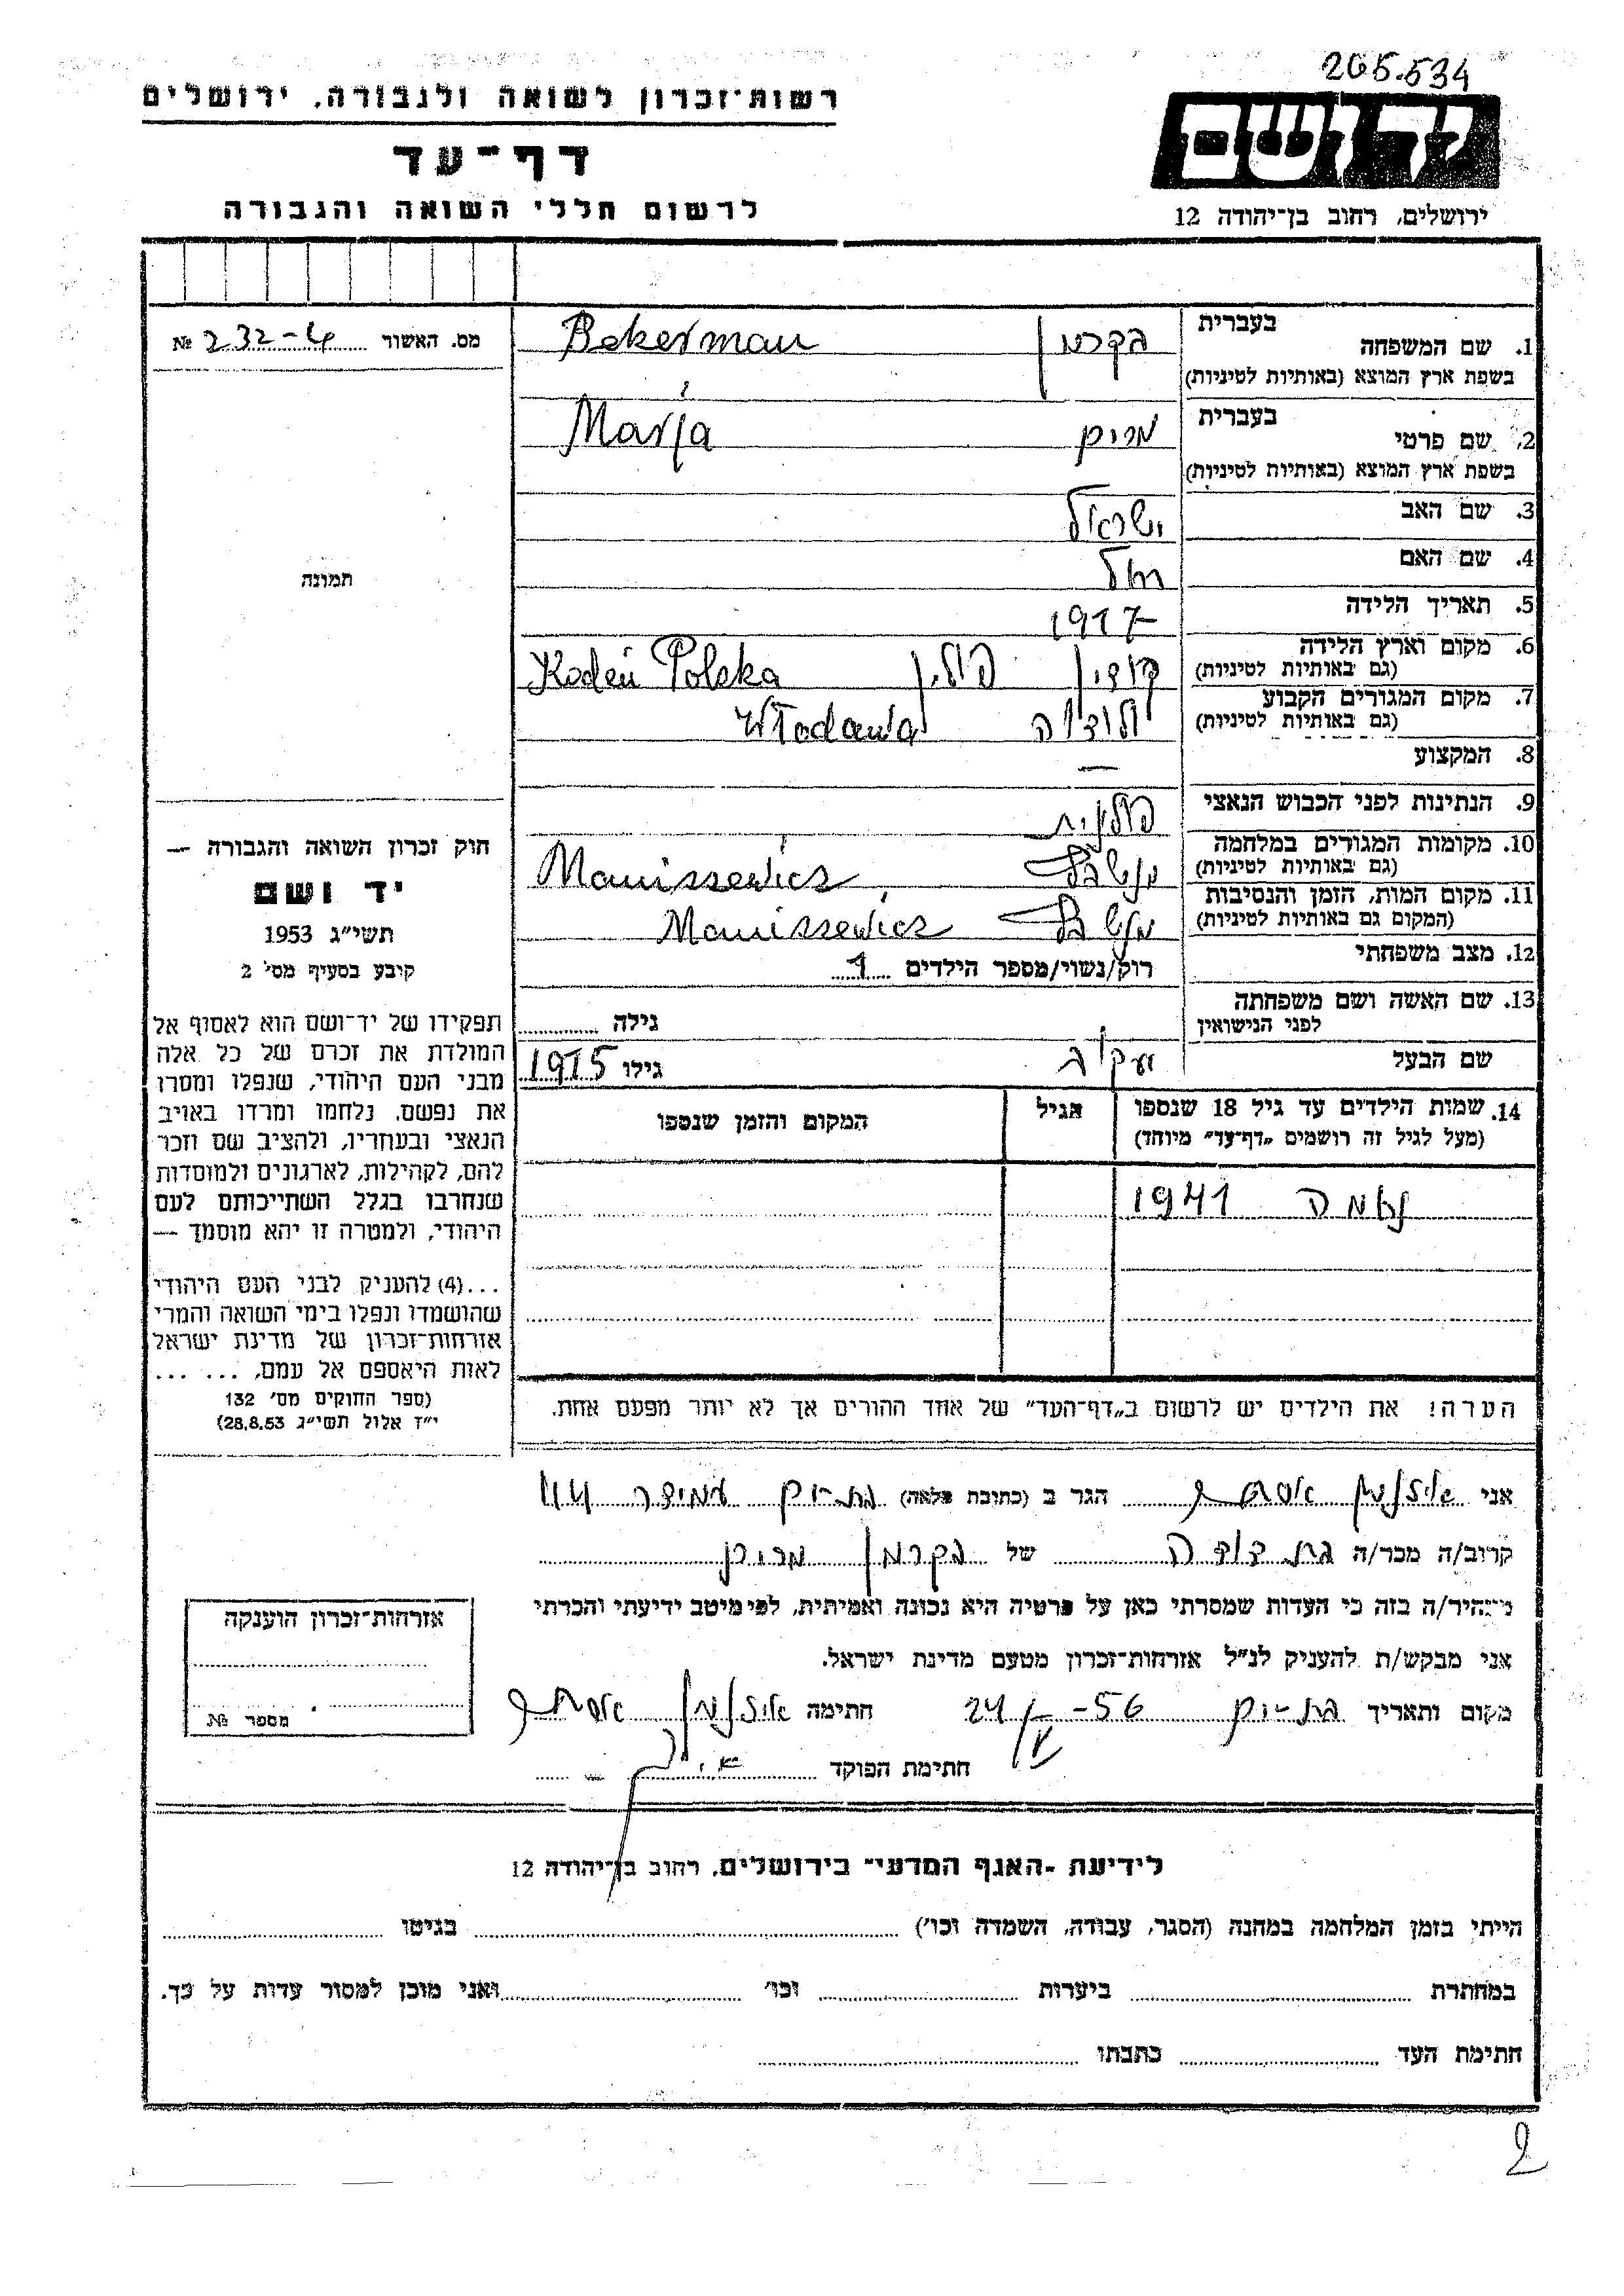 265.534
רשות־זכרון לשואה ולגבורה, ירושלים
דף־עד
לרשום חללי השואה והגבורה
יד ושם
ירושלים, רחוב בן־יהודה 12
מס. האשור 232-4 №
תמונה
חוק זכרון השואה והגבורה —
יד ושם
תשי״ג 1953
קובע בסעיף מס׳ 2
תפקידו של יד־ושם הוא לאסוף אל
המולדת את זכרם של כל אלה
מבני העם היהודי, שנפלו ומסרו
את נפשם, נלחמו ומרדו באויב
הנאצי ובעוזריו, ולהציב שם וזכר
להם, לקהילות, לארגונים ולמוסדות
שנחרבו בגלל השתייכותם לעם
היהודי, ולמטרה זו יהא מוסמך —
...(4) להעניק לבני העם היהודי
שהושמדו ונפלו בימי השואה והמרי
אזרחות־זכרון של מדינת ישראל
לאות היאספם אל עמם, ... ...
(ספר החוקים מס׳ 132
י״ז אלול תשי״ג 28.8.53)
בעברית
1. שם המשפחה בקרמן Bekerman
בשפת ארץ המוצא (באותיות לטיניות)
בעברית
2. שם פרטי מרים Marja
בשפת ארץ המוצא (באותיות לטיניות)
3. שם האב ישראל
4. שם האם רחל
5. תאריך הלידה 1917
6. מקום וארץ הלידה קודין פולין Kodeń Polska
(גם באותיות לטיניות)
7. מקום המגורים הקבוע ולודוה Włodawa
(גם באותיות לטיניות)
8. המקצוע —
9. הנתינות לפני הכבוש הנאצי פולנית
10. מקומות המגורים במלחמה Maniszewicz
(גם באותיות לטיניות)
11. מקום המות, הזמן והנסיבות Maniszewicz
(המקום גם באותיות לטיניות)
12. מצב משפחתי רוק/נשוי/מספר הילדים 1
13. שם האשה ושם משפחתה גילה
לפני הנישואין
שם הבעל יעקוב גילו 1915
14. שמות הילדים עד גיל 18 שנספו הגיל המקום והזמן שנספו
(מעל לגיל זה רושמים „דף־עד״ מיוחד)
נחמה 1941
הערה! את הילדים יש לרשום ב„דף־העד״ של אחד ההורים אך לא יותר מפעם אחת.
אני אייזנמן אסתר הגר ב (כתובת מלאה) בת־ים עמידר 114
קרוב/ה מכר/ה בת דודה של בקרמן מרים
מצהיר/ה בזה כי העדות שמסרתי כאן על פרטיה היא נכונה ואמיתית, לפי מיטב ידיעתי והכרתי
אני מבקש/ת להעניק לנ״ל אזרחות־זכרון מטעם מדינת ישראל.
מקום ותאריך בת־ים 56- 24/ חתימה אייזנמן אסתר
חתימת הפוקד
אזרחות־זכרון הוענקה
מספר №
לידיעת ־האגף המדעי״ בירושלים, רחוב בן־יהודה 12
הייתי בזמן המלחמה במחנה (הסגר, עבודה, השמדה וכו׳) בגיטו
במחתרת ביערות וכו׳ ואני מוכן למסור עדות על כך.
חתימת העד כתבתו
2